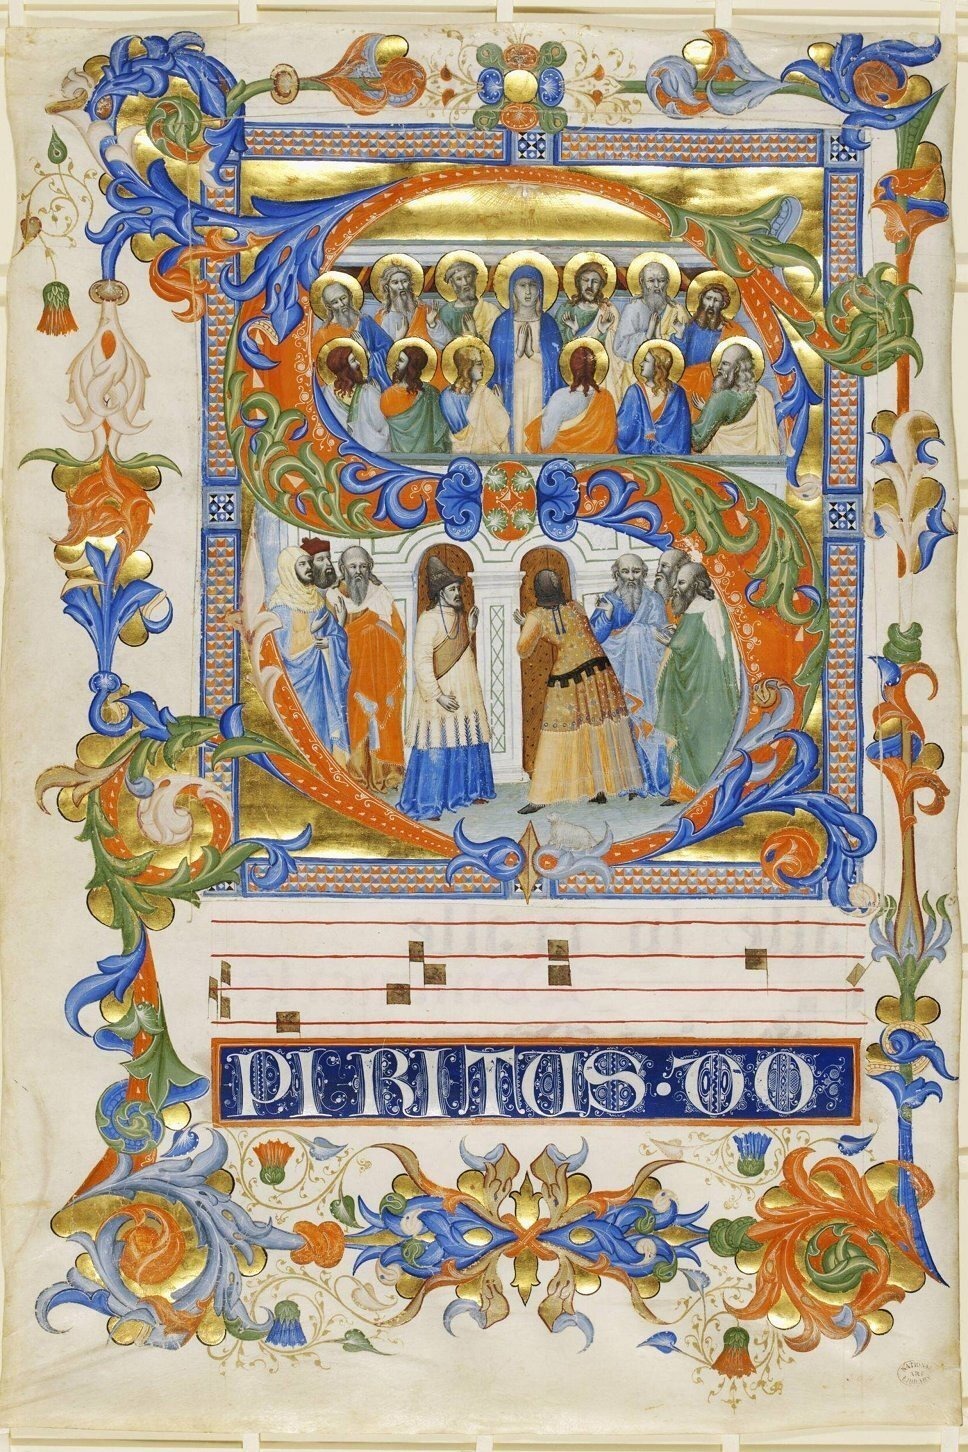 S
PIRITUS · DO
NATIONAL
ART
LIBRARY